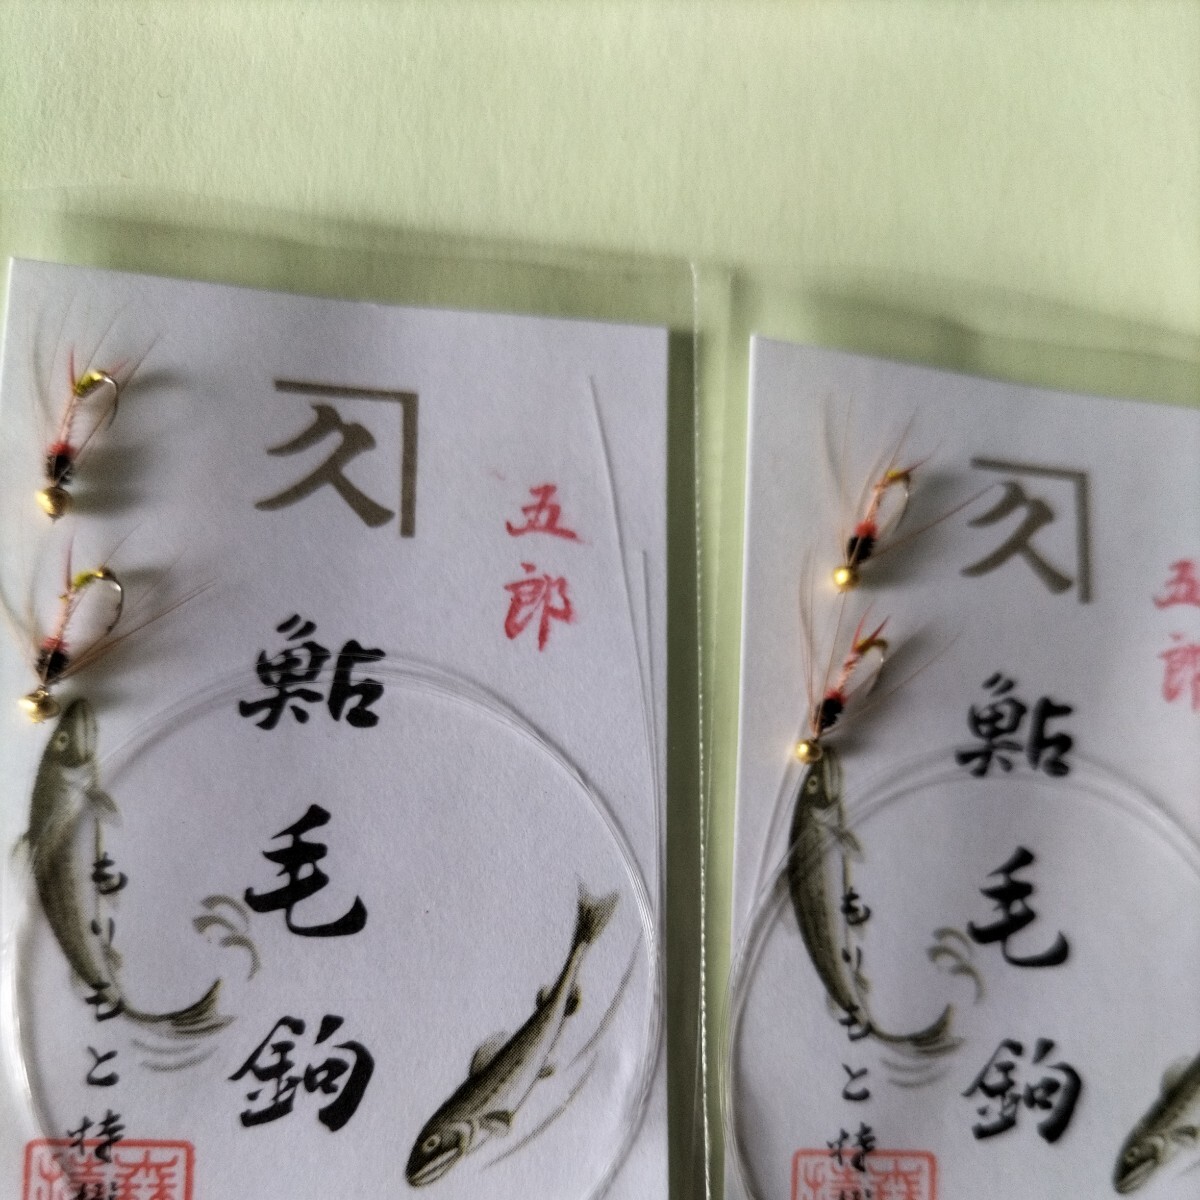 久
五郎
鮎毛鈎
もりもと特
久
五郎
鮎毛鈎
もりもと特